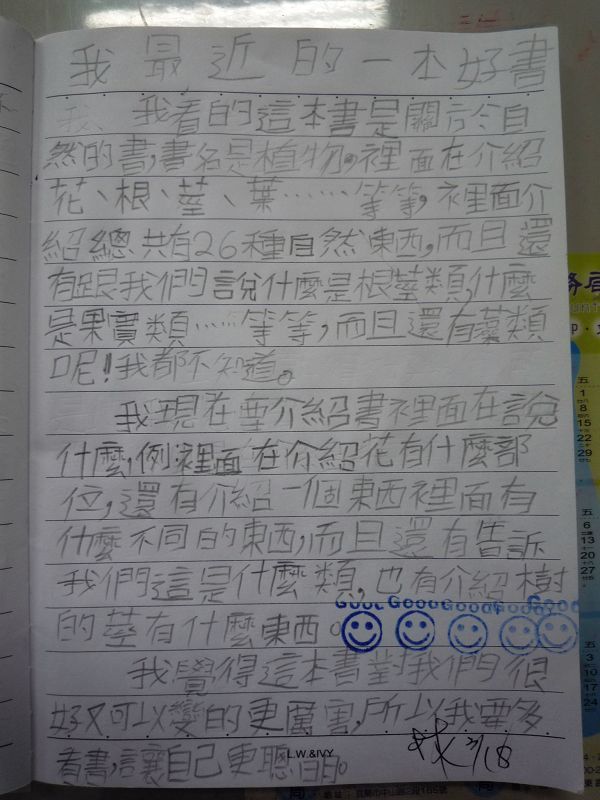 我最近的一本好書
我看的這本書是關於令自
然的書,書名是植物。裡面在介紹
花、根、莖、葉……等等,裡面介
紹總共有26種自然東西,而且還
有跟我們說什麼是根莖類,什麼
是果實類……等等,而且還有葉類
呢!我都不知道。
我現在要介紹書裡面在說
什麼,例裡面在介紹花有什麼部
位,還有介紹一個東西裡面有
什麼不同的東西,而且還有告訴
我們這是什麼類,也有介紹樹
的莖有什麼東西。
Good Good Good Good Good
我覺得這本書對我們很
好又可以變的更厲害,所以我要多
看書,讓自己更聰明。
L.W.&IVY
五
1
8
15
22
29
五
6
13
20
27
五
3
10
17
24